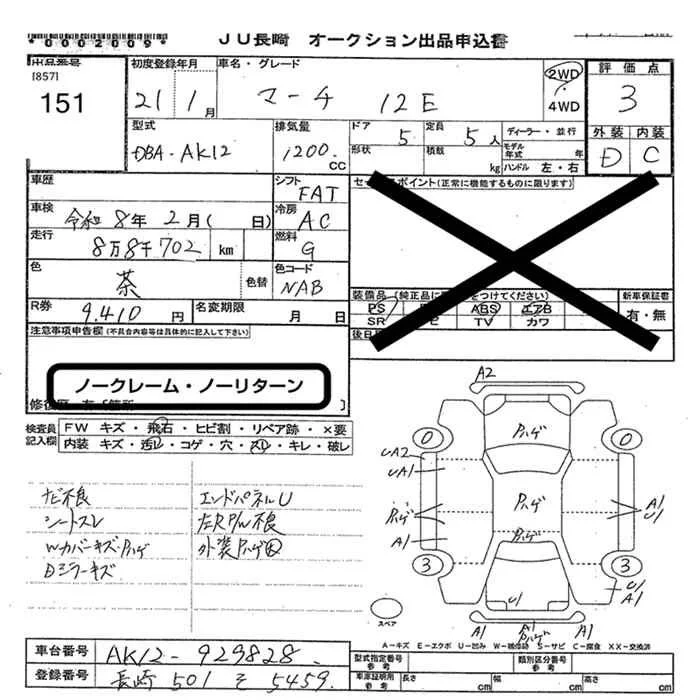 *0002009*
JU長崎 オークション出品申込書
出品番号
[857]
151
初度登録年月
21 1月
車名・グレード
マーチ 12E
2WD
・
4WD
評価点
3
外装 内装
D C
型式
DBA-AK12
排気量
1200.
CC
ドア 5
形状
定員 5人
積載 kg
ディーラー・並行
モデル年式 年
ハンドル 左・右
車歴
シフト FAT
車検 令和8年2月( 日)
冷房 AC
走行 8万8千702 km
燃料 G
色 茶 色替
色コード NAB
R券 9,410円
名変期限 月 日
ポイント(正常に機能するものに限ります)
装備品
PS ABS エアB
SR TV カワ
新車保証書
有・無
注意事項申告欄(不具合内容等は具体的に記入して下さい)
ノークレーム・ノーリターン
検査員記入欄
FW キズ・飛石・ヒビ割・リペア跡・×要
内装 キズ・汚レ・コゲ・穴・スレ・キレ・破レ
ナビ不良
シートスレ
Wカバーキズ・Pハゲ
Dミラーキズ
エンドパネルU
左RP/W不良
外装Pハゲ大
A2
Pハゲ
0
0
UA2
UA1
Pハゲ
Pハゲ
A1
A1
U1
Pハゲ
3
3
U1
U1
A1
A1
Pハゲ
A1
スペア
A-キズ E-エクボ U-凹み W-補修跡 S-サビ C-腐食 XX-交換済
車台番号 AK12-929828.
登録番号 長崎 501 そ 5459.
型式指定番号
参考
類別区分番号
参考
車庫証明用
参考
長さ cm
幅 cm
高さ cm